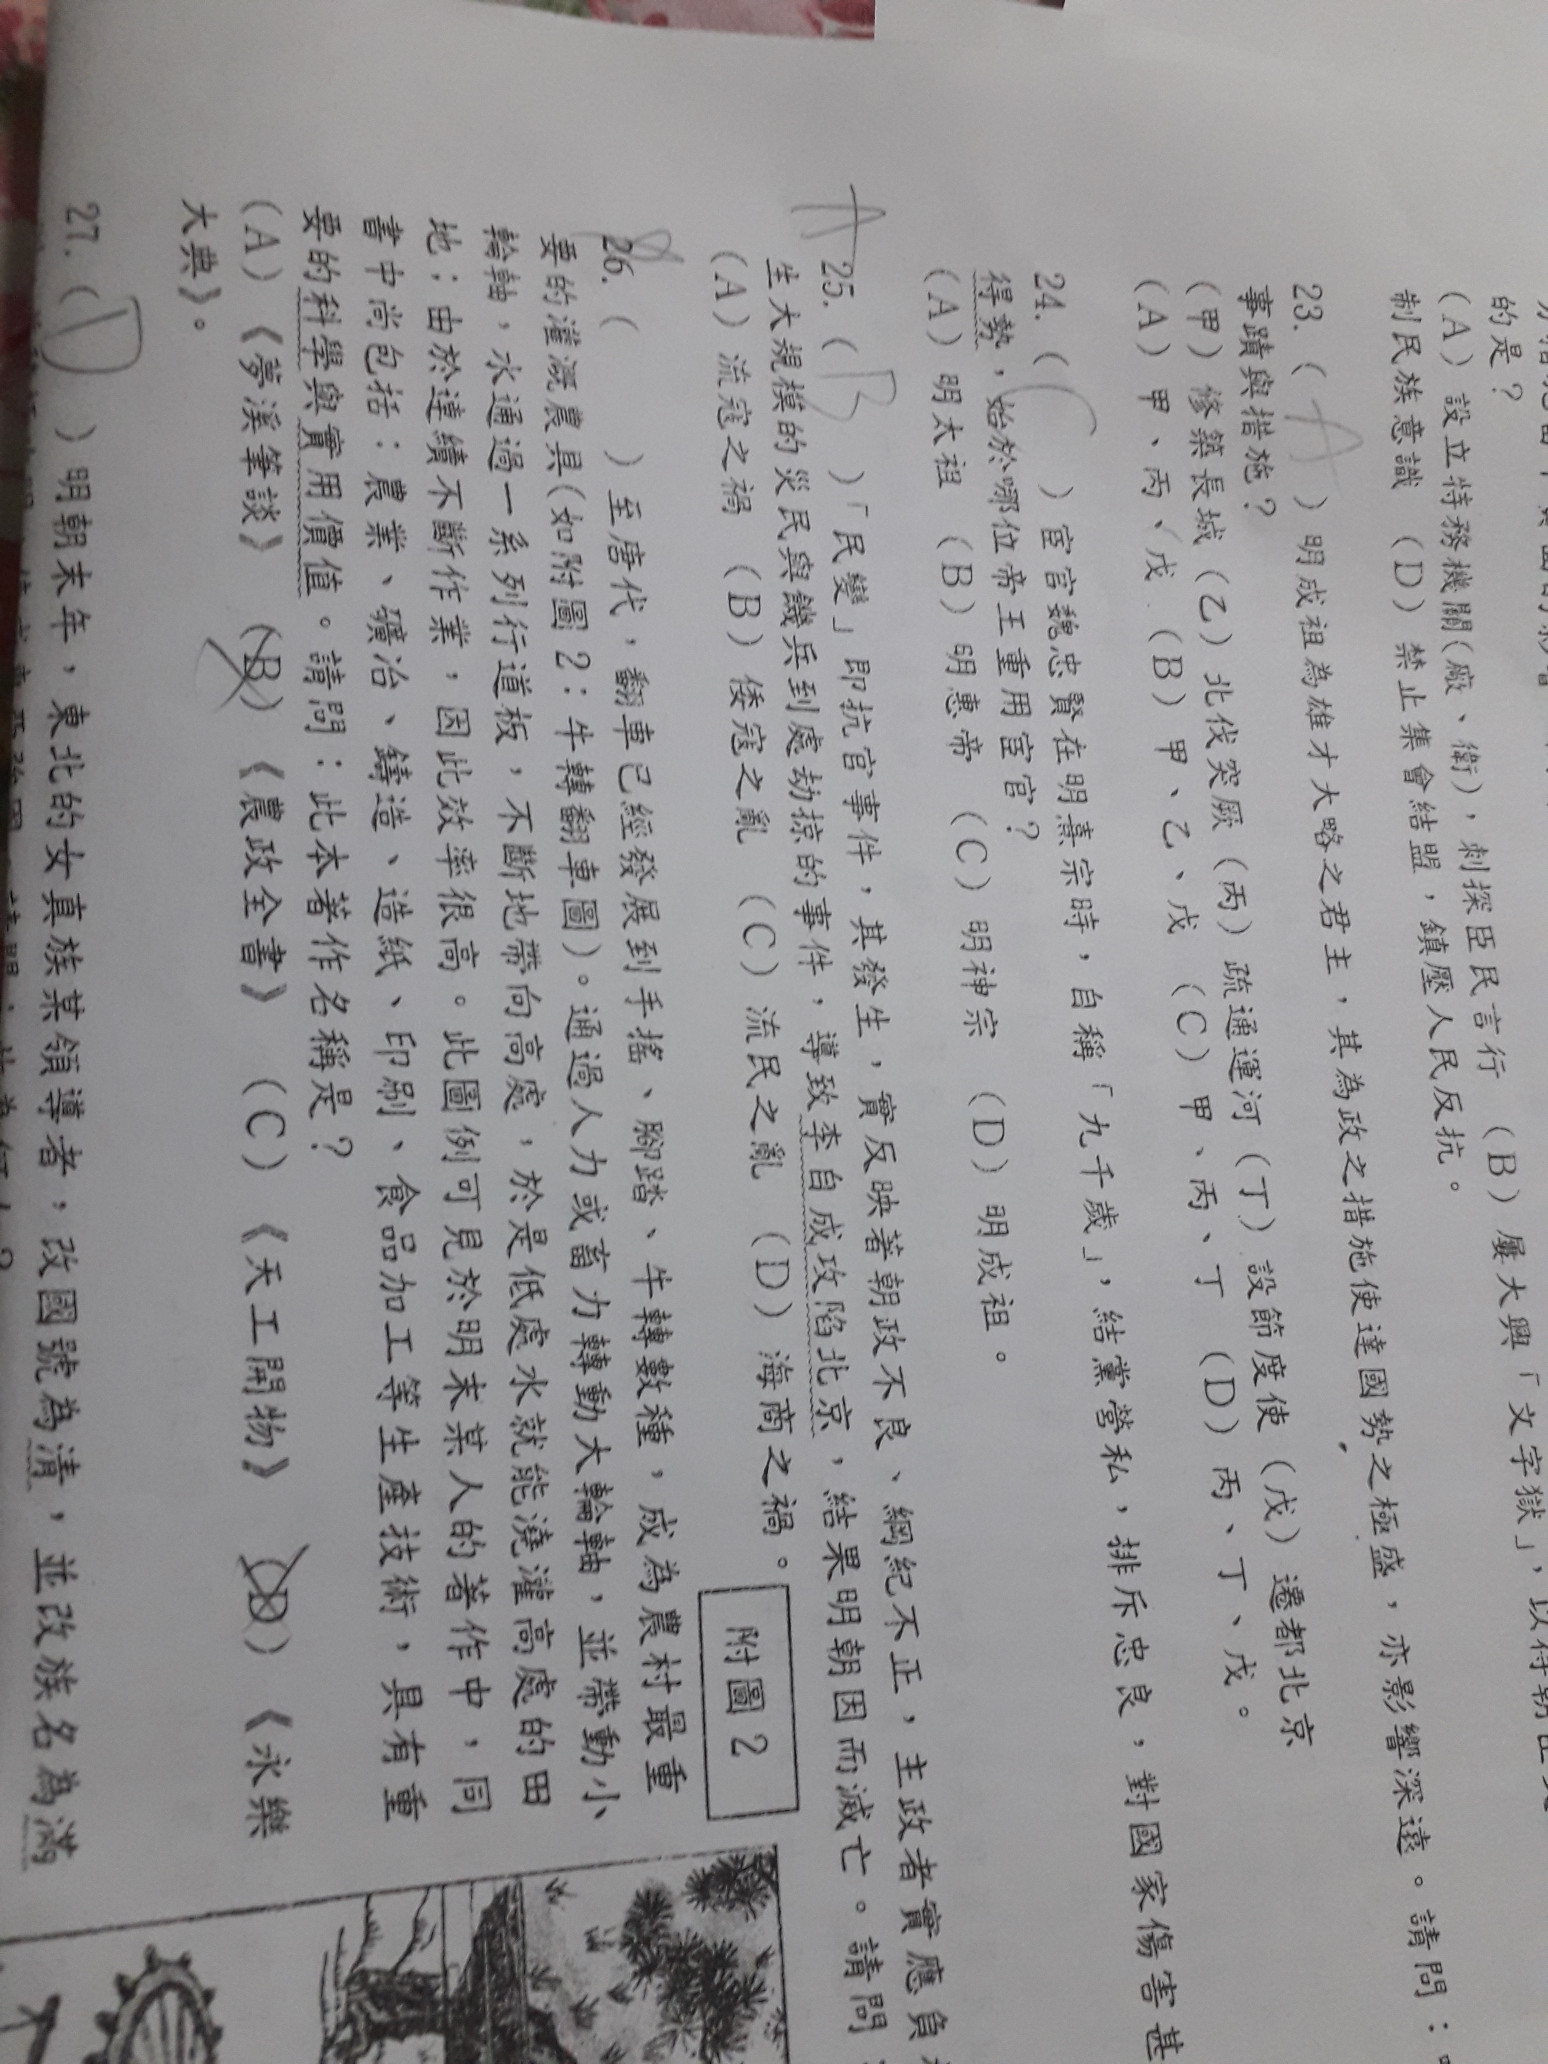 的是？
(A) 設立特務機關(廠、衛)，刺探臣民言行 (B) 屢大興「文字獄」，以
制民族意識 (D) 禁止集會結盟，鎮壓人民反抗。
23. ( A ) 明成祖為雄才大略之君主，其為政之措施使達國勢之極盛，亦影響深遠。請問：
事蹟與措施？
(甲) 修築長城 (乙) 北伐突厥 (丙) 疏通運河 (丁) 設節度使 (戊) 遷都北京
(A) 甲、丙、戊 (B) 甲、乙、戊 (C) 甲、丙、丁 (D) 丙、丁、戊。
24. ( C ) 宦官魏忠賢在明熹宗時，自稱「九千歲」，結黨營私，排斥忠良，對國家傷害甚
得勢，始於哪位帝王重用宦官？
(A) 明太祖 (B) 明惠帝 (C) 明神宗 (D) 明成祖。
A
25. ( B ) 「民變」即抗官事件，其發生，實反映著朝政不良、綱紀不正，主政者實應負
生大規模的災民與饑兵到處劫掠的事件，導致李自成攻陷北京，結果明朝因而滅亡。請問
(A) 流寇之禍 (B) 倭寇之亂 (C) 流民之亂 (D) 海商之禍。
附圖 2
26. ( ) 至唐代，翻車已經發展到手搖、腳踏、牛轉數種，成為農村最重
要的灌溉農具(如附圖 2：牛轉翻車圖)。通過人力或畜力轉動大輪軸，並帶動小
輪軸，水通過一系列行道板，不斷地帶向高處，於是低處水就能澆灌高處的田
地；由於連續不斷作業，因此效率很高。此圖例可見於明末某人的著作中，同
書中尚包括：農業、礦冶、鑄造、造紙、印刷、食品加工等生產技術，具有重
要的科學與實用價值。請問：此本著作名稱是？
(A) 《夢溪筆談》 (B) 《農政全書》 (C) 《天工開物》 (D) 《永樂
大典》。
27. ( D ) 明朝末年，東北的女真族某領導者，改國號為清，並改族名為滿